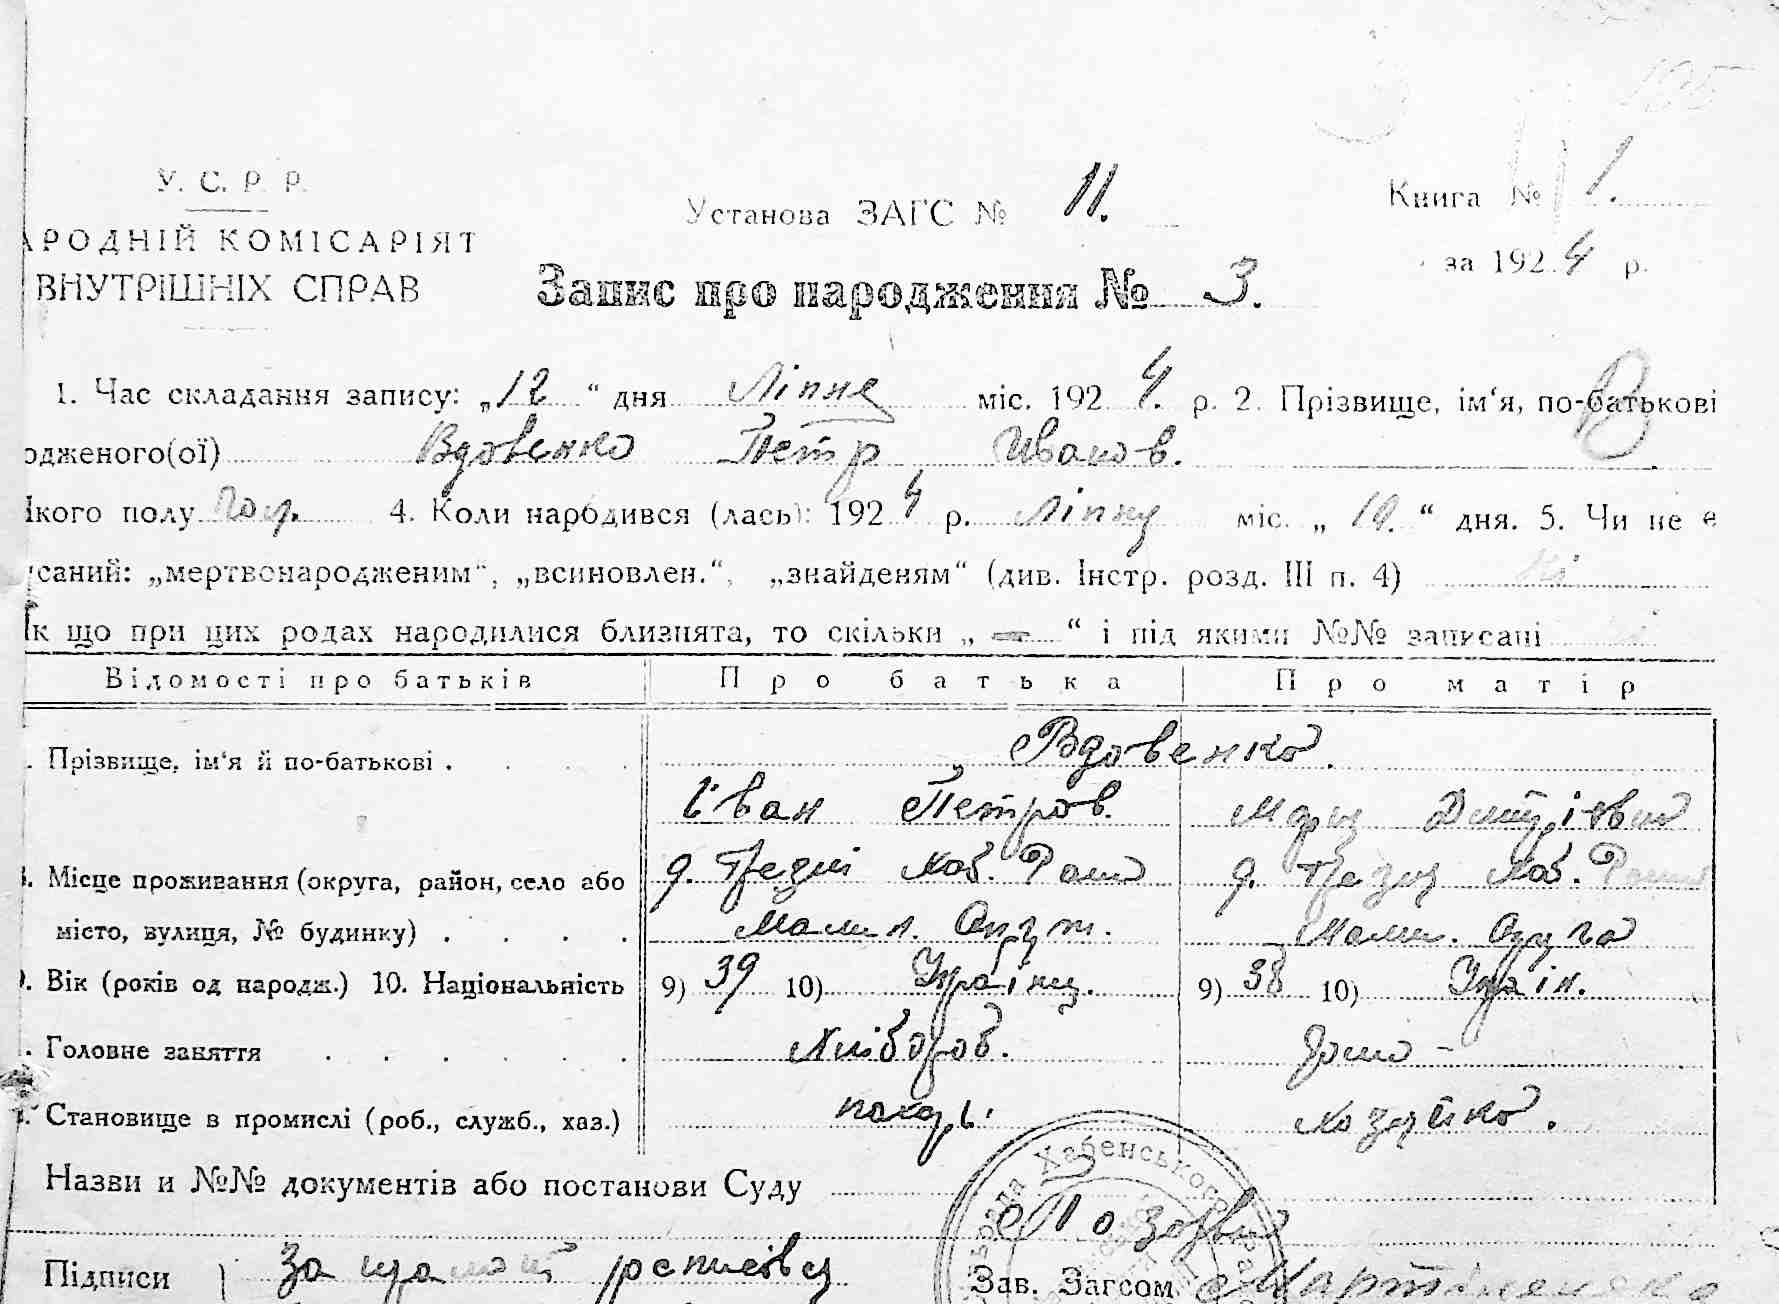 195
У. С. Р. Р.
АРОДНІЙ КОМІСАРІЯТ
ВНУТРІШНІХ СПРАВ
Установа ЗАГС № 11.
Книга № 1.
за 1924 р.
Запис про народження № 3.
1. Час складання запису: „12“ дня Ліпня міс. 1924. р. 2. Прізвище, ім‘я, по-батькові
одженого(ої) Вдовенко Петр Иванов.
якого полу чол. 4. Коли народився (лась): 1924 р. Ліпня міс. „10.“ дня. 5. Чи не є
исаний: „мертвонародженим“, „всиновлен.“, „знайденям“ (див. Інстр. розд. III п. 4) ні
Як що при цих родах народилися близнята, то скільки „—“ і під якими №№ записані
Відомості про батьків Про батька Про матір
. Прізвище, ім‘я й по-батькові . Вдовенко.
Іван Петров. Мария Дмитрівна
. Місце проживання (округа, район, село або д. Грезля Хаб. Раион д. Грезля Хаб. Раион
місто, вулиця, № будинку) . Малин. Округ. Малин. Округа
. Вік (років од народж.) 10. Національність 9) 39 10) Україниц. 9) 38 10) Україн.
. Головне заняття Хлібороб. Домо-
. Становище в промислі (роб., служб., хаз.) пахарь. Хозяйка.
Назви и №№ документів або постанови Суду
Хабенського
Підписи За
Зав. Загсом Мартиненко